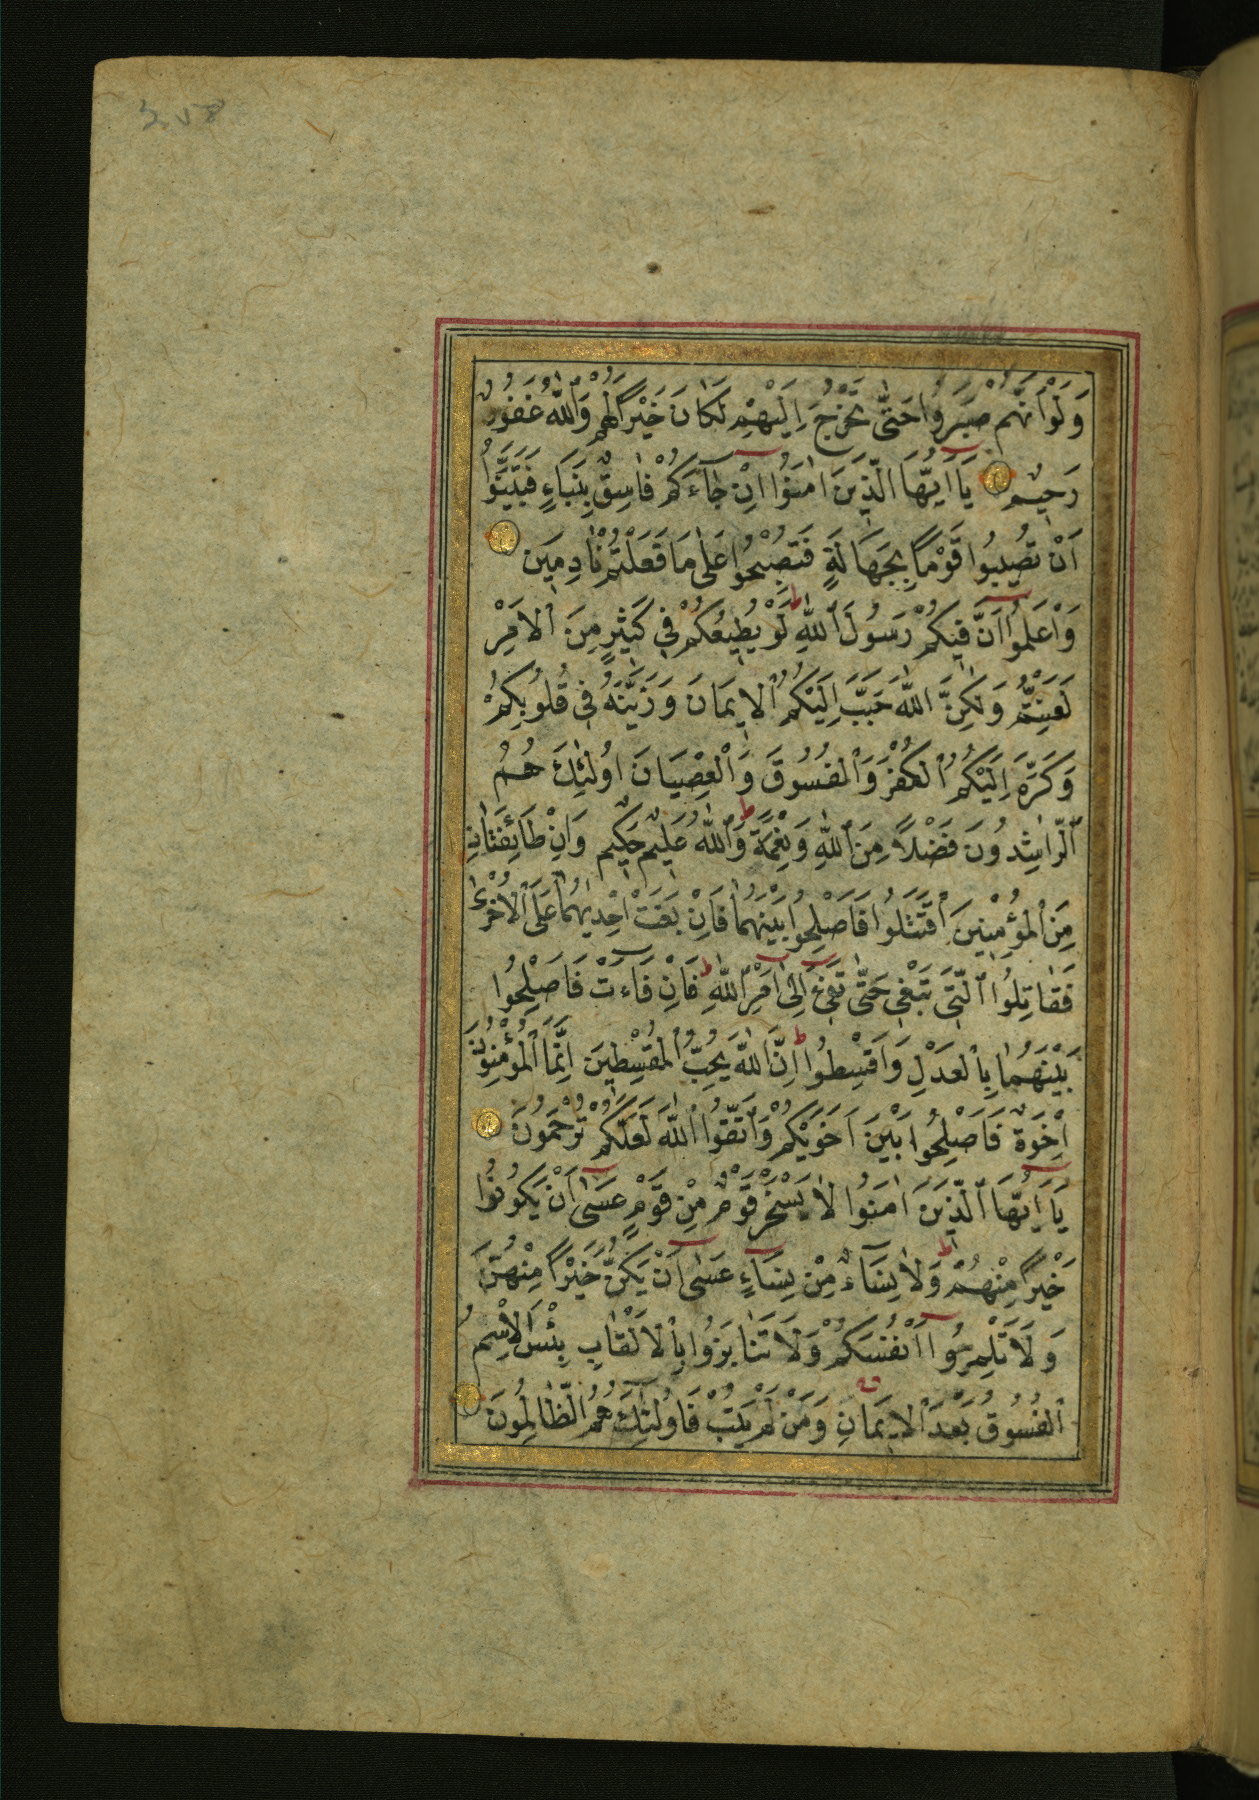 وَلَوْ اَنَّهُمْ صَبَرُوا حَتّٰى تَخْرُجَ اِلَيْهِمْ لَكَانَ خَيْرًا لَهُمْ وَاللّٰهُ غَفُورٌ
رَحِيمٌ يَٓا اَيُّهَا الَّذِينَ اٰمَنُٓوا اِنْ جَٓاءَكُمْ فَاسِقٌ بِنَبَاءٍ فَتَبَيَّنُٓوا
اَنْ تُصِيبُوا قَوْمًا بِجَهَالَةٍ فَتُصْبِحُوا عَلٰى مَا فَعَلْتُمْ نَادِمِينَ
وَاعْلَمُٓوا اَنَّ فِيكُمْ رَسُولَ اللّٰهِ لَوْ يُطِيعُكُمْ فِي كَثِيرٍ مِنَ الْاَمْرِ
لَعَنِتُّمْ وَلٰكِنَّ اللّٰهَ حَبَّبَ اِلَيْكُمُ الْاِيمَانَ وَزَيَّنَهُ فِي قُلُوبِكُمْ
وَكَرَّهَ اِلَيْكُمُ الْكُفْرَ وَالْفُسُوقَ وَالْعِصْيَانَ اُولٰٓئِكَ هُمُ
الرَّاشِدُونَ فَضْلًا مِنَ اللّٰهِ وَنِعْمَةً وَاللّٰهُ عَلِيمٌ حَكِيمٌ وَاِنْ طَائِفَتَانِ
مِنَ الْمُؤْمِنِينَ اقْتَتَلُوا فَاَصْلِحُوا بَيْنَهُمَا فَاِنْ بَغَتْ اِحْدٰيهُمَا عَلَى الْاُخْرٰى
فَقَاتِلُوا الَّتِي تَبْغِي حَتّٰى تَفِيءَ اِلٰٓى اَمْرِ اللّٰهِ فَاِنْ فَٓاءَتْ فَاَصْلِحُوا
بَيْنَهُمَا بِالْعَدْلِ وَاَقْسِطُوا اِنَّ اللّٰهَ يُحِبُّ الْمُقْسِطِينَ اِنَّمَا الْمُؤْمِنُونَ
اِخْوَةٌ فَاَصْلِحُوا بَيْنَ اَخَوَيْكُمْ وَاتَّقُوا اللّٰهَ لَعَلَّكُمْ تُرْحَمُونَ
يَٓا اَيُّهَا الَّذِينَ اٰمَنُوا لَا يَسْخَرْ قَوْمٌ مِنْ قَوْمٍ عَسٰٓى اَنْ يَكُونُوا
خَيْرًا مِنْهُمْ وَلَا نِسَٓاءٌ مِنْ نِسَٓاءٍ عَسٰٓى اَنْ يَكُنَّ خَيْرًا مِنْهُنَّ
وَلَا تَلْمِزُٓوا اَنْفُسَكُمْ وَلَا تَنَابَزُوا بِالْاَلْقَابِ بِئْسَ الْاِسْمُ
الْفُسُوقُ بَعْدَ الْاِيمَانِ وَمَنْ لَمْ يَتُبْ فَاُولٰٓئِكَ هُمُ الظَّالِمُونَ